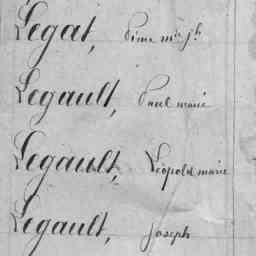 Legat, Pierre m^ie j^h
Legault, Paul marie
Legault, Léopold marie
Legault, joseph